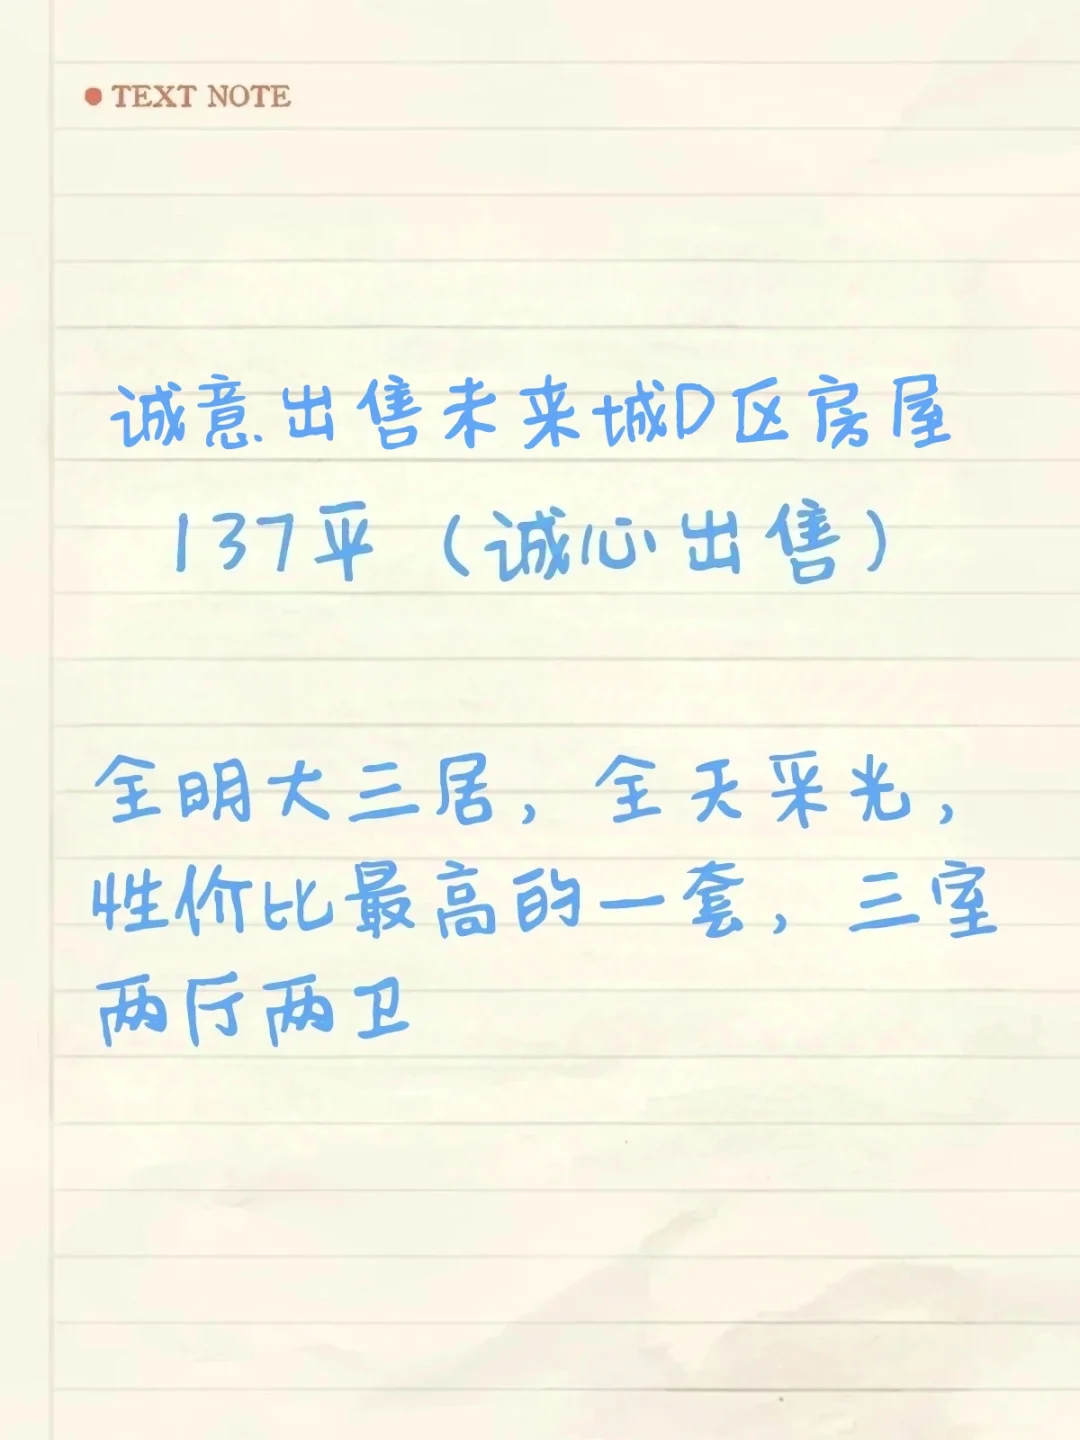 TEXT NOTE
诚意出售未来城D区房屋
137平（诚心出售）
全明大三居，全天采光，
性价比最高的一套，三室
两厅两卫